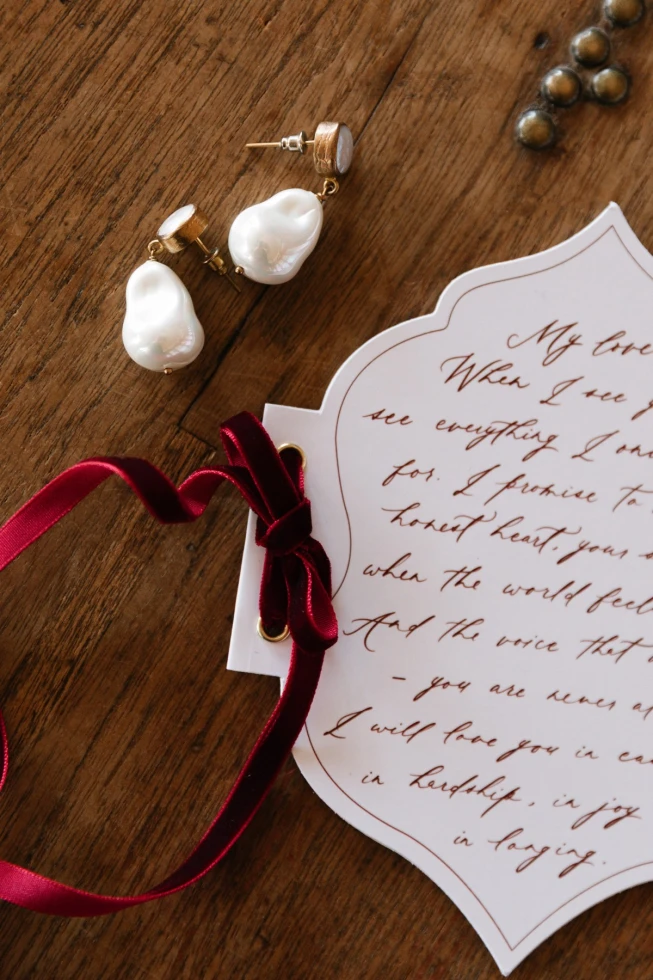 My love
When I see
see everything I
for. I promise to
honest heart, your
when the world
And the voice that
– you are never
I will love you in
in hardship, in joy
in longing.